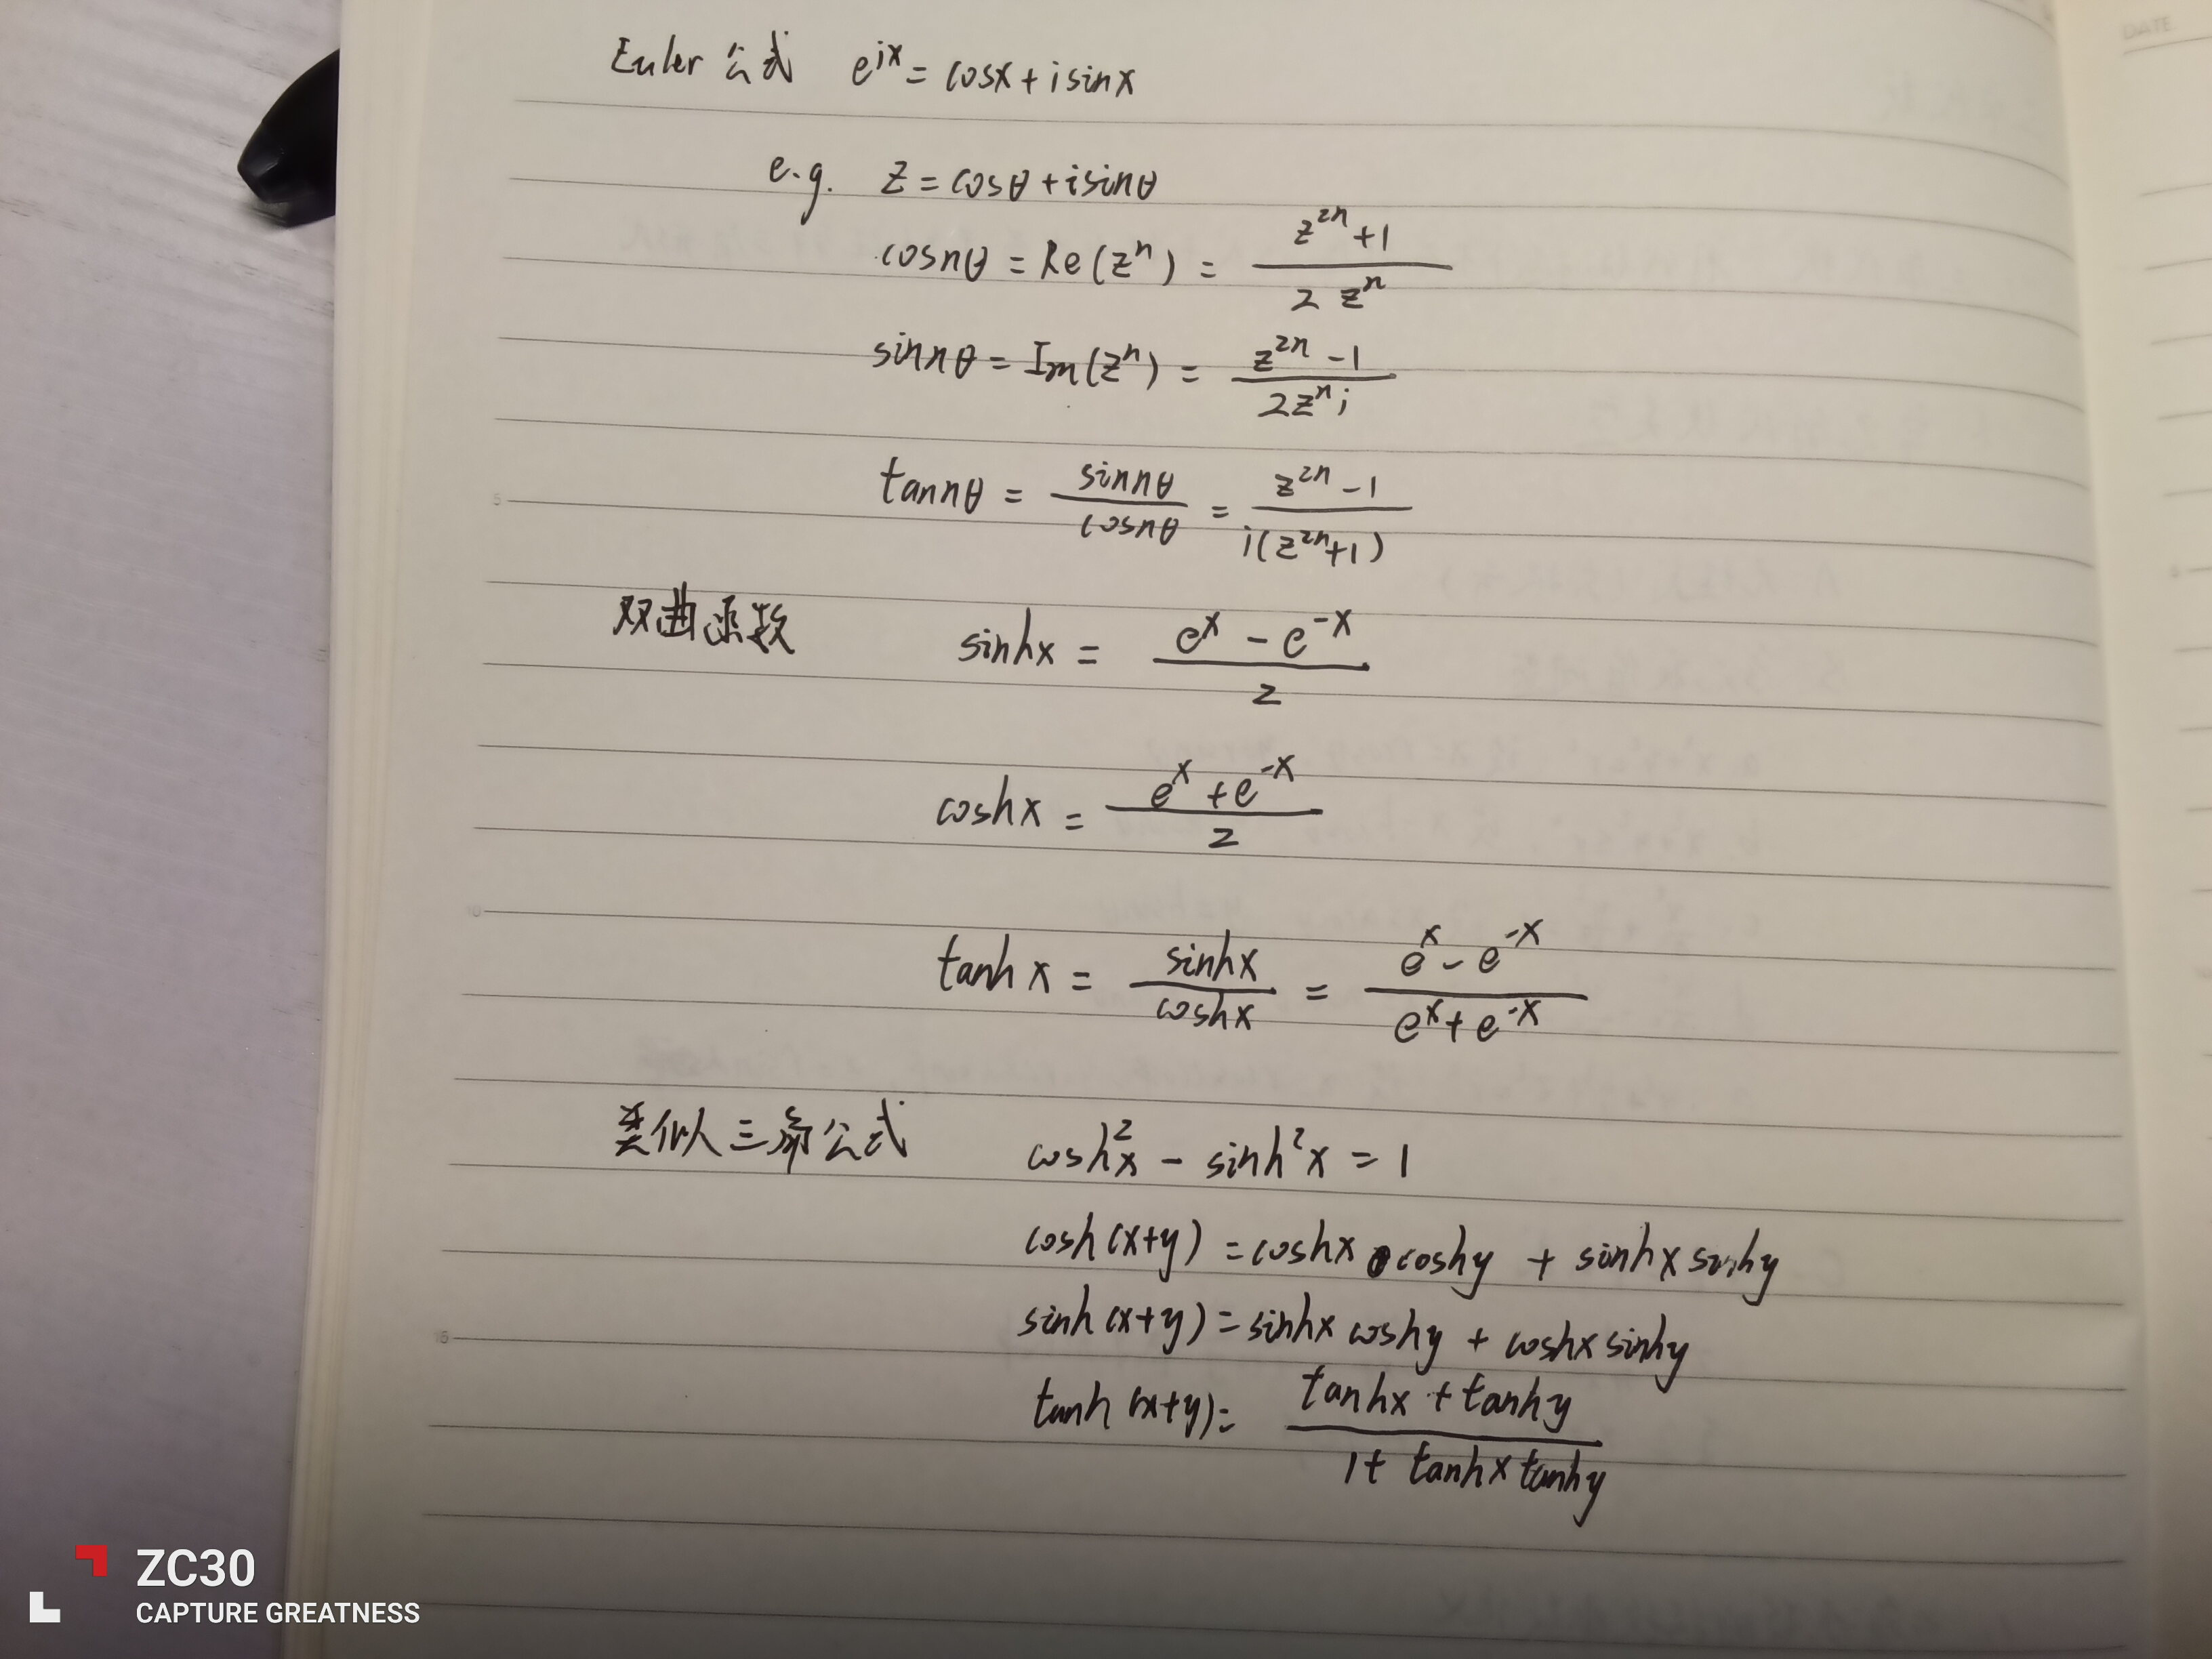 Euler 公式 e^{ix} = cosx + isinx
e.g. z = cosθ + isinθ
cosnθ = Re(z^n) = \frac{z^{2n}+1}{2 z^n}
sinnθ = Im(z^n) = \frac{z^{2n}-1}{2z^n i}
tannθ = \frac{sinnθ}{cosnθ} = \frac{z^{2n}-1}{i(z^{2n}+1)}
双曲函数 sinhx = \frac{e^x - e^{-x}}{2}
coshx = \frac{e^x + e^{-x}}{2}
tanhx = \frac{sinhx}{coshx} = \frac{e^x - e^{-x}}{e^x + e^{-x}}
类似三角公式 cosh^2x - sinh^2x = 1
cosh(x+y) = coshx coshy + sinhx sinhy
sinh(x+y) = sinhx coshy + coshx sinhy
tanh(x+y) = \frac{tanhx + tanhy}{1+ tanhx tanhy}
DATE
5
10
15
ZC30
CAPTURE GREATNESS